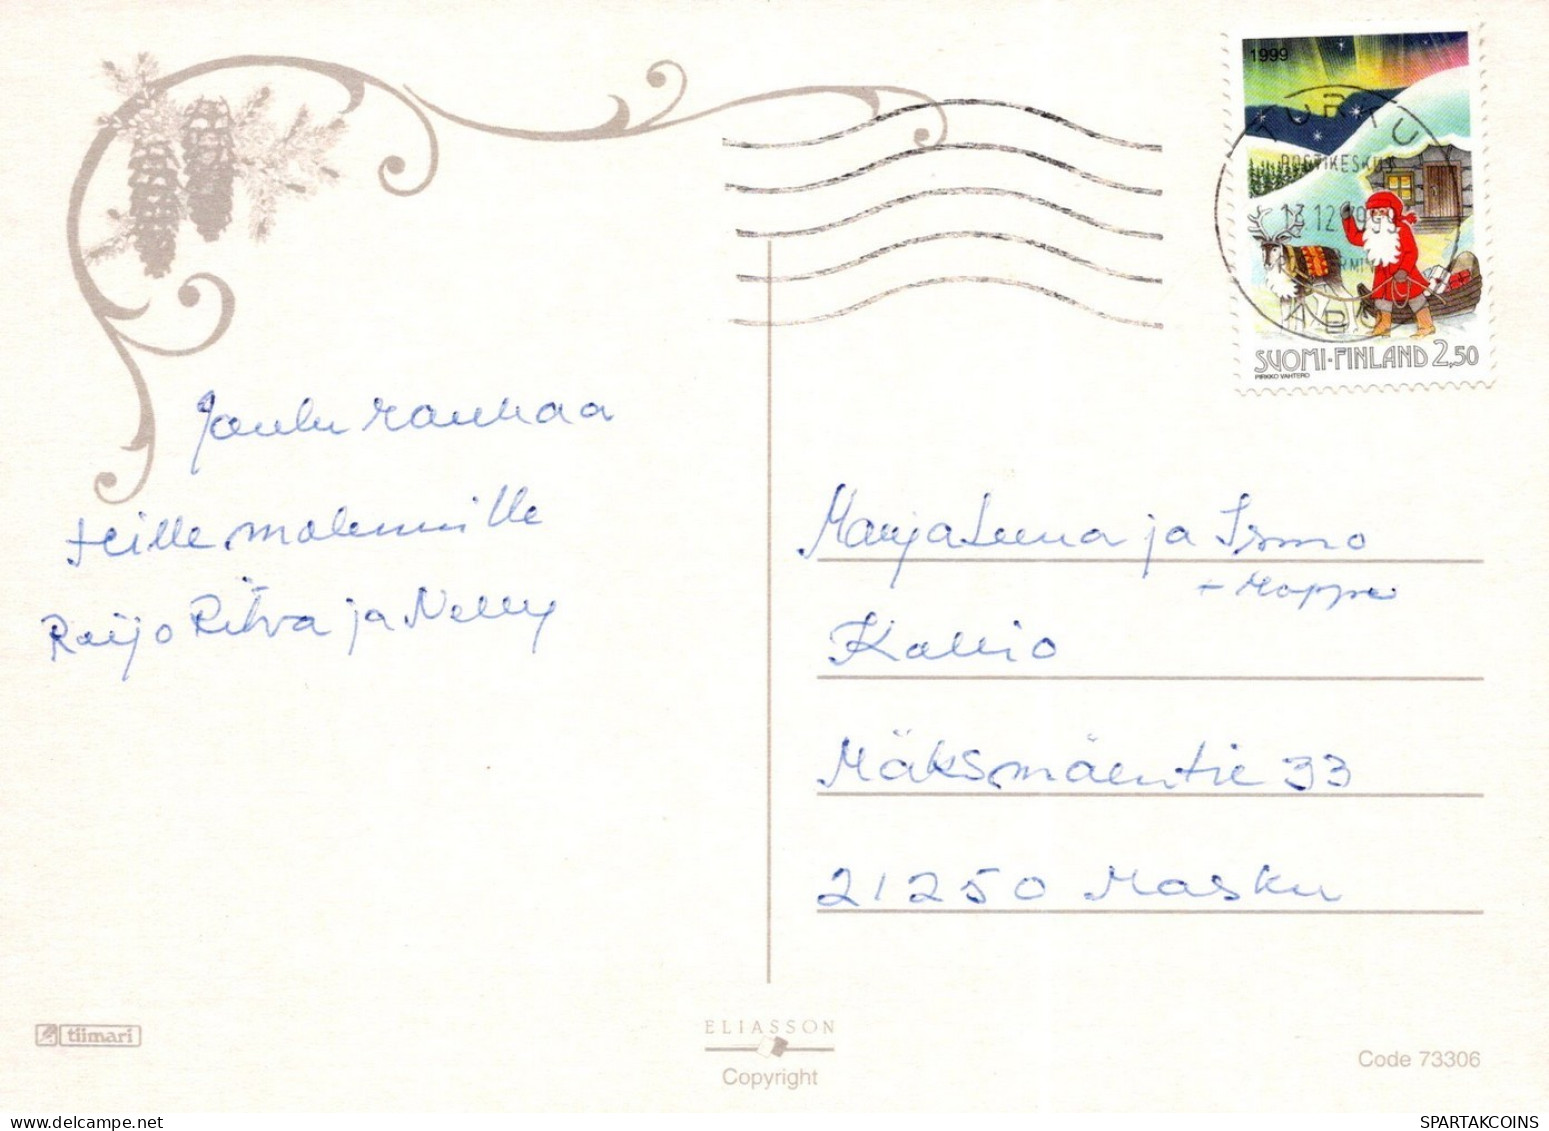 1999
TURKU
POSTIKESKUS
13.12.1999
ÅBO
SUOMI-FINLAND 2,50
PIRKKO VAHTERO
Joulu rauhaa
teille molemmille
Raijo Ritva ja Nelly
Marjaleena ja Ismo
+ Moppe
Kallio
Mäksmäentie 33
21250 Masku
tiimari
ELIASSON
Copyright
Code 73306
SPARTAKCOINS